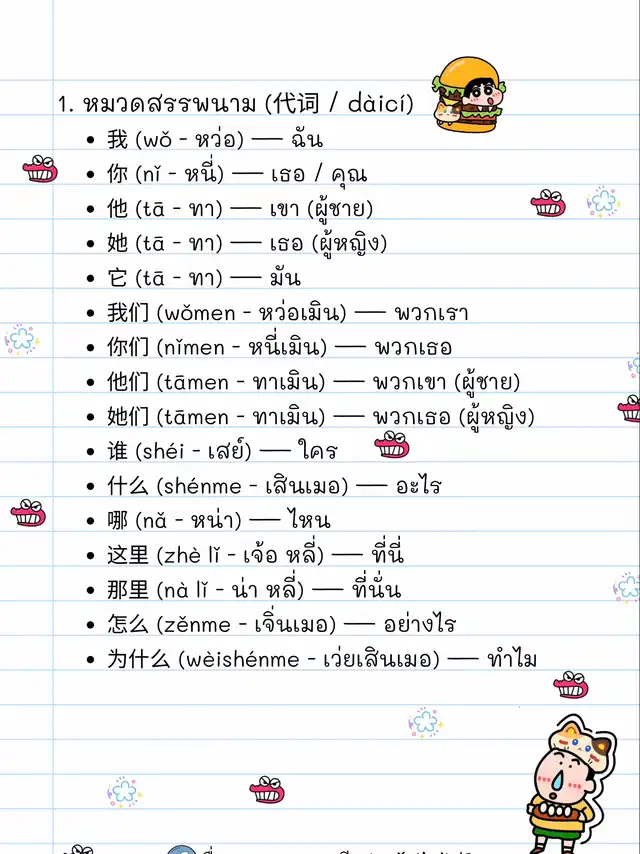 1. หมวดสรรพนาม (代词 / dàicí)
• 我 (wǒ - หว่อ) — ฉัน
• 你 (nǐ - หนี่) — เธอ / คุณ
• 他 (tā - ทา) — เขา (ผู้ชาย)
• 她 (tā - ทา) — เธอ (ผู้หญิง)
• 它 (tā - ทา) — มัน
• 我们 (wǒmen - หว่อเมิน) — พวกเรา
• 你们 (nǐmen - หนี่เมิน) — พวกเธอ
• 他们 (tāmen - ทาเมิน) — พวกเขา (ผู้ชาย)
• 她们 (tāmen - ทาเมิน) — พวกเธอ (ผู้หญิง)
• 谁 (shéi - เสย์) — ใคร
• 什么 (shénme - เสินเมอ) — อะไร
• 哪 (nǎ - หน่า) — ไหน
• 这里 (zhè lǐ - เจ้อ หลี่) — ที่นี่
• 那里 (nà lǐ - น่า หลี่) — ที่นั่น
• 怎么 (zěnme - เจิ่นเมอ) — อย่างไร
• 为什么 (wèishénme - เว่ยเสินเมอ) — ทำไม